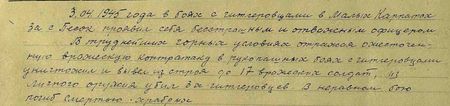 3.04.1945 года в боях с гитлеровцами в Малых Карпатах
за с Песок проявил себя бесстрашным и отважным офицером
В труднейших горных условиях отражая ожесточен-
ную вражескую контратаку в рукопашных боях с гитлеровцами
уничтожил и вывел из строя до 17 вражеских солдат, из
личного оружия убил 3х гитлеровцев. В неравном бою
погиб смертью храбрых